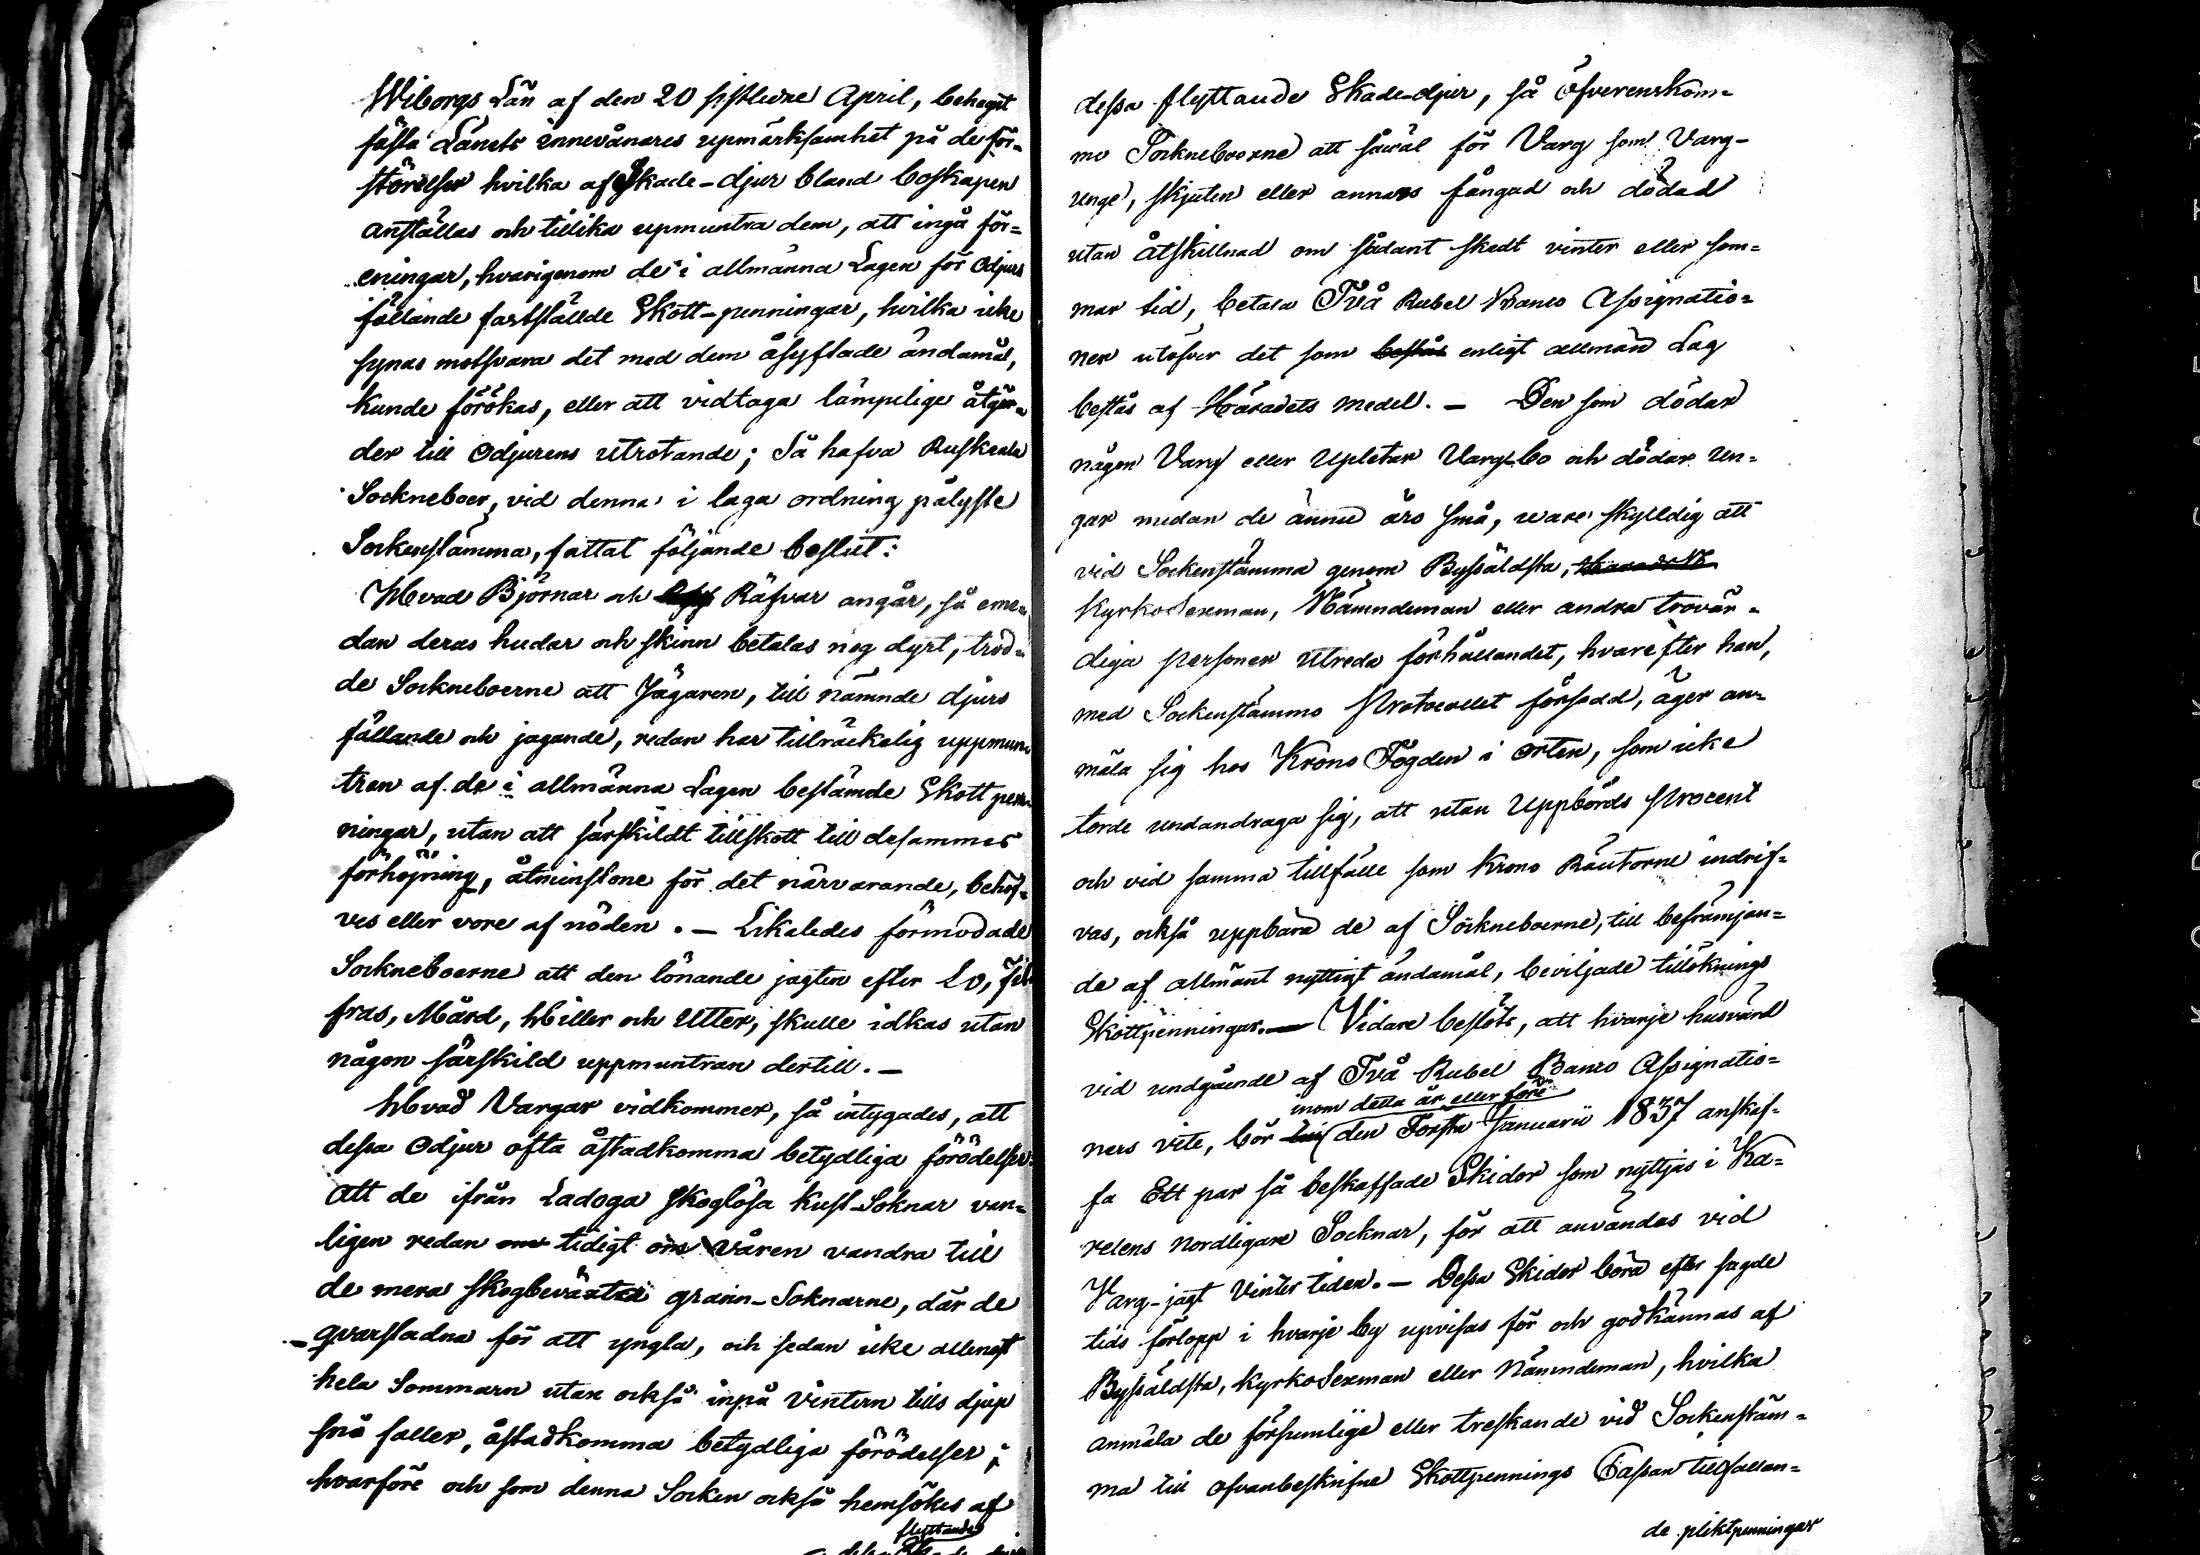 Wiborgs Län af den 20 sistledne April, behagat
fästa Länets innevånares upmärksamhet på de för=
störelser hvilka af Skade-djur bland boskapen
anställas och tillika upmuntra dem, att ingå för=
eningar, hvarigenom de i allmänna Lagen för Odjurs
fällande fastställde Skott-penningar, hvilka icke
synas motsvara det med dem åsyftade ändamål,
kunde förökas, eller att vidtaga lämpelige åtgär=
der till Odjurens utrotande; Så hafva Ruskeala
Sockneboer, vid denna i laga ordning pålyste
Sockenstämma, fattat följande beslut:
Hvad Björnar och Räfvar angår, så eme=
dan deras hudar och skinn betalas nog dyrt, trod=
de Sockneboerne att Jägaren, till nämnde djurs
fällande och jagande, redan har tillräckelig uppmun=
tran af de i allmänna Lagen bestämde Skott pen=
ningar, utan att särskildt tillskott till desammas
förhöjning, åtminstone för det närvarande, behöf=
ves eller vore af nöden. — Likaledes förmodade
Sockneboerne att den lönande jagten efter Lo, Jel
fras, Mård, Hiller och Utter, skulle idkas utan
någon särskild uppmuntran dertill. —
Hvad Vargar vidkommer, så intygades, att
dessa Odjur ofta åstadkomma betydliga förödelser
att de ifrån Ladoga skoglösa kust-Soknar van=
ligen redan tidigt om våren vandra till
de mera skogbeväxta grann-Soknarne, där de
qvarstadna för att yngla, och sedan icke allenast
hela Sommarn utan också inpå Vintern tills djup
snö faller, åstadkomma betydliga förödelser;
hvarföre och som denna Socken också hemsökes af
flyttande
dessa flyttande Skade-djur, så öfverenskom=
mo Sockneboerne att såväl för Varg som Varg-
unge, skjuten eller annars fångad och dödad
utan åtskillnad om sådant skedt vinter eller som=
mar tid, betala Två Rubel Banco Assignatio=
ner utöfver det som bestås enligt allmän Lag
bestås af Häradets medel. — Den som dödar
någon Varg eller upletar Varg-bo och dödar un=
gar medan de ännu äro små, ware skyldig att
vid Sockenstämma genom Byssäldsta,
Kyrkosexman, Nämndeman eller andra trovär=
diga personer utreda förhållandet, hvarefter han,
med Sockenstämmo Protocollet försedd, äger an=
mäla sig hos Krono Fogden i orten, som icke
torde undandraga sig, att utan Uppbörds procent
och vid samma tillfälle som Krono Räntorne indrif=
vas, också uppbära de af Sockneboerne, till befrämjan=
de af allmänt nyttigt ändamål, beviljade tillöknings
Skottpenningar. — Vidare beslöts, att hvarje husvärd
vid undgående af Två Rubel Banco Assignatio=
inom detta år eller före
ners vite, bör den Första Januarii 1837 anskaf=
fa Ett par så beskaffade Skidor som nyttjas i Ka=
relens nordligare Socknar, för att användas vid
Varg-jagt Vinter tiden. — Dessa Skidor böra efter sagde
tids förlopp i hvarje by upvisas för och godkännas af
Byssäldsta, Kyrkosexman eller Nämndeman, hvilka
anmäla de försumlige eller treskande vid Sockenstäm=
ma till ofvanbeskrifne Skottpennings Cassan tillfallan=
de pliktpenningar